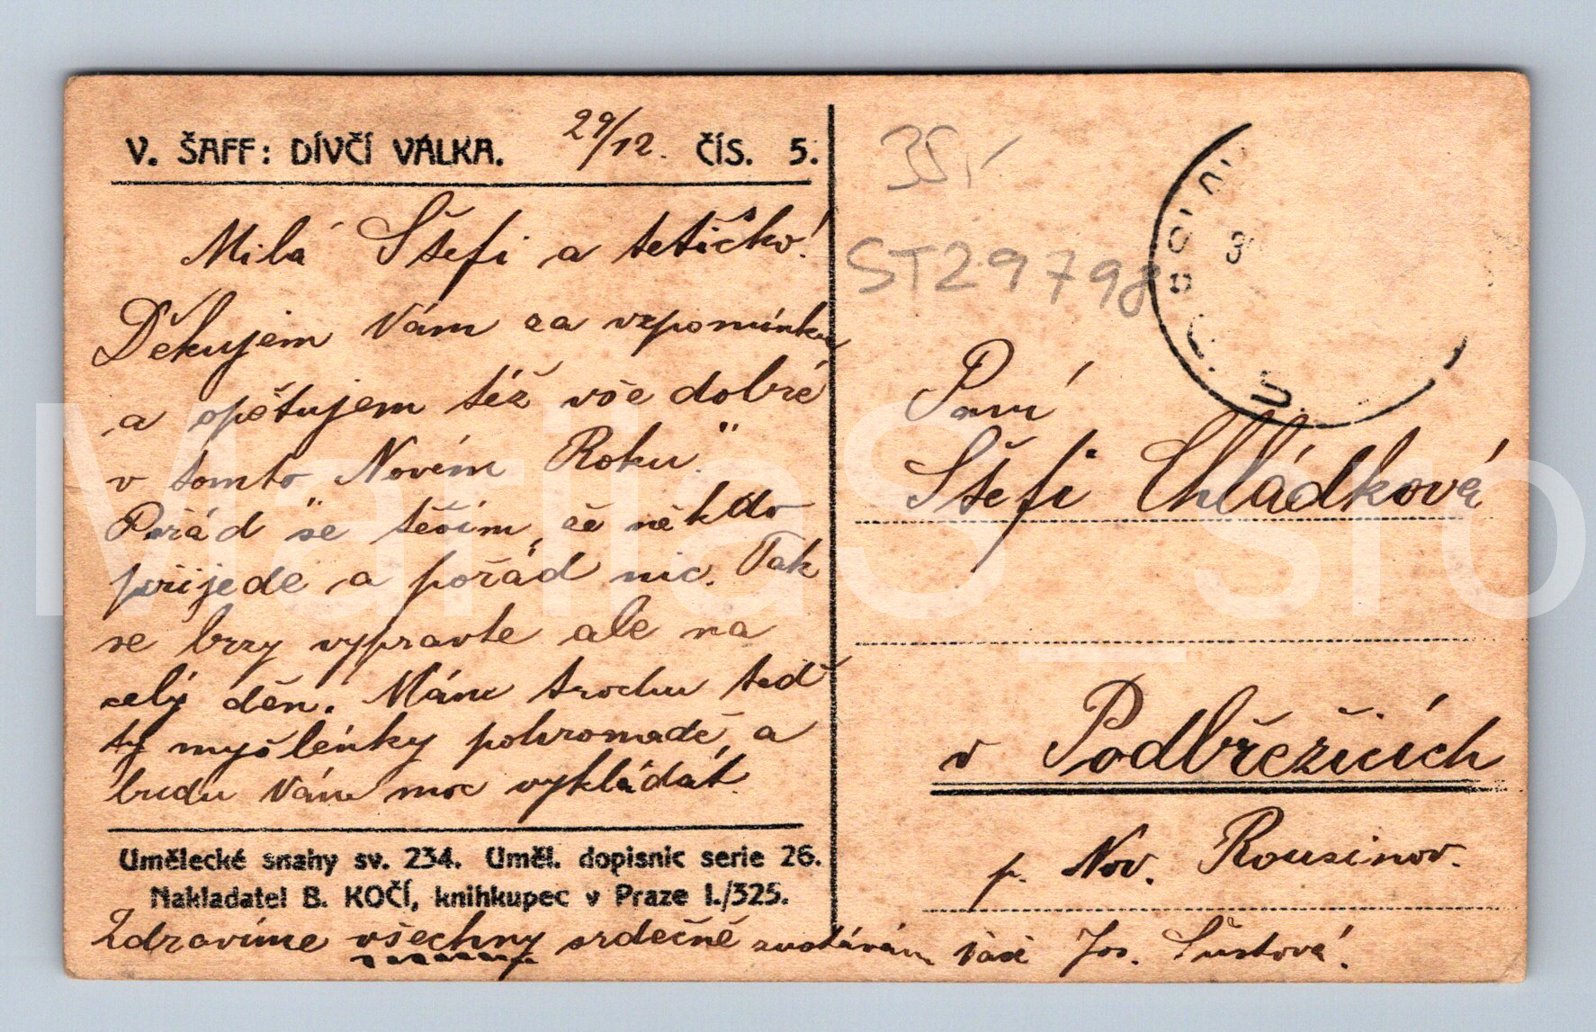 V. ŠAFF: DÍVČÍ VÁLKA. 29/12. ČÍS. 5.
Milá Štefi a tetičko!
Děkujem Vám za vzpomínku
a opětujem též vše dobré
v tomto Novém Roku."
Pořád se těším, že někdo
přijede a pořád nic. Tak
se brzy vypravte ale na
celý děn. Máme trochu teď
ty myšlénky pohromadě a
budu Vám moc vykládát.
Umělecké snahy sv. 234. Uměl. dopisnic serie 26.
Nakladatel B. KOČÍ, knihkupec v Praze I./325.
Zdravíme všechny srdečně zůstávám Vaše Jos. Šustová.
35,-
ST29798
Paní
Štefi Chládková
v Podbřežicích
p. Nov. Rousinov.
MariaS_sro